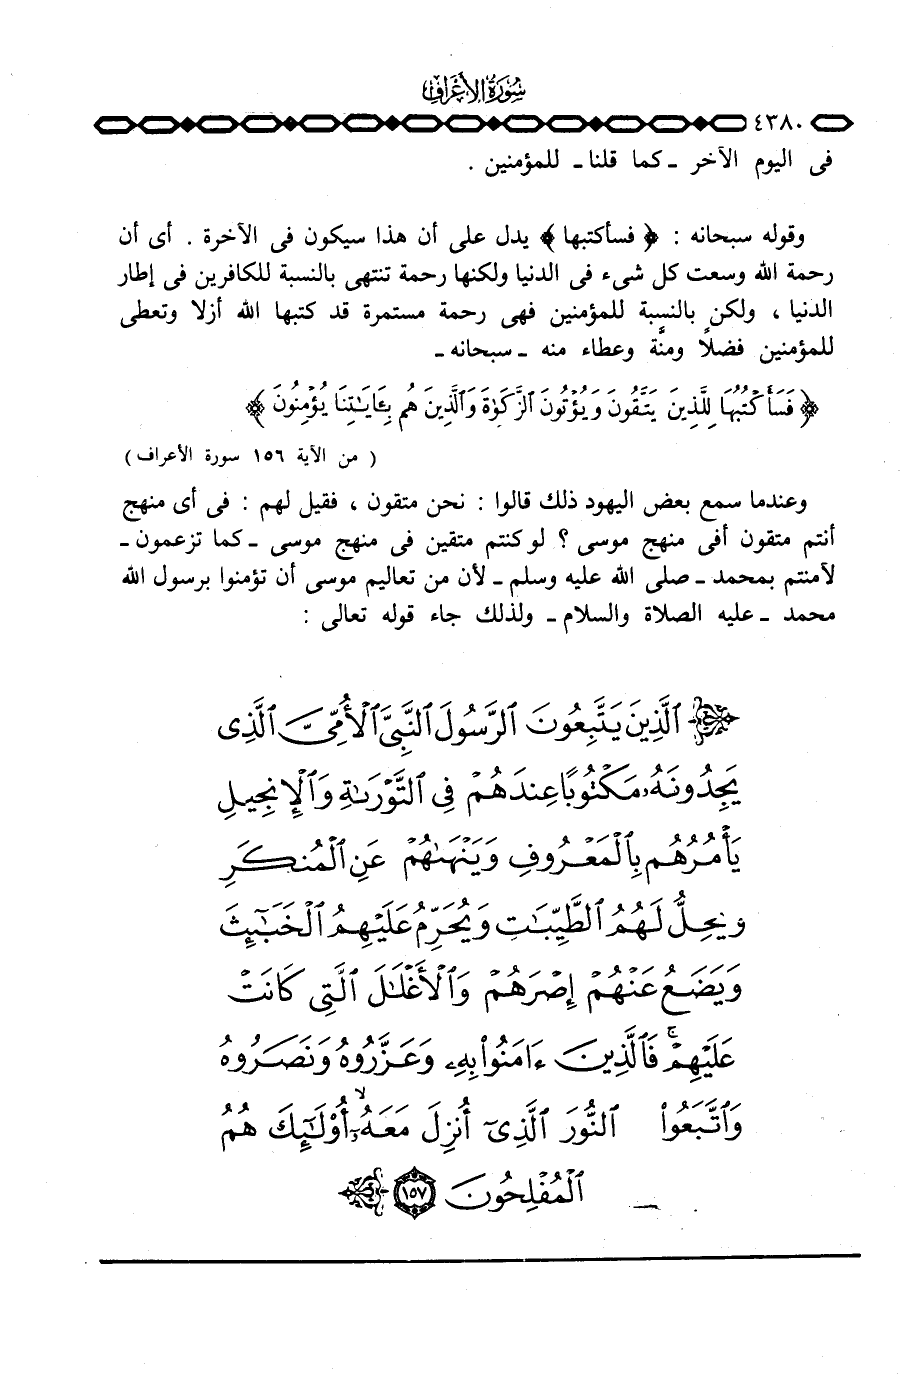 سورة الأعراف
٤٣٨٠
فى اليوم الآخر ـ كما قلنا ـ للمؤمنين .
وقوله سبحانه : ﴿ فسأكتبها ﴾ يدل على أن هذا سيكون فى الآخرة . أى أن
رحمة الله وسعت كل شىء فى الدنيا ولكنها رحمة تنتهى بالنسبة للكافرين فى إطار
الدنيا ، ولكن بالنسبة للمؤمنين فهى رحمة مستمرة قد كتبها الله أزلا وتعطى
للمؤمنين فضلاً ومنَّة وعطاء منه ـ سبحانه ـ
﴿ فَسَأَكْتُبُهَا لِلَّذِينَ يَتَّقُونَ وَيُؤْتُونَ ٱلزَّكَوٰةَ وَٱلَّذِينَ هُم بِـَٔايَـٰتِنَا يُؤْمِنُونَ ﴾
( من الآية ١٥٦ سورة الأعراف )
وعندما سمع بعض اليهود ذلك قالوا : نحن متقون ، فقيل لهم : فى أى منهج
أنتم متقون أفى منهج موسى ؟ لو كنتم متقين فى منهج موسى ـ كما تزعمون ـ
لآمنتم بمحمد ـ صلى الله عليه وسلم ـ لأن من تعاليم موسى أن تؤمنوا برسول الله
محمد ـ عليه الصلاة والسلام ـ ولذلك جاء قوله تعالى :
﴿ ٱلَّذِينَ يَتَّبِعُونَ ٱلرَّسُولَ ٱلنَّبِىَّ ٱلْأُمِّىَّ ٱلَّذِى
يَجِدُونَهُۥ مَكْتُوبًا عِندَهُمْ فِى ٱلتَّوْرَىٰةِ وَٱلْإِنجِيلِ
يَأْمُرُهُم بِٱلْمَعْرُوفِ وَيَنْهَىٰهُمْ عَنِ ٱلْمُنكَرِ
وَيُحِلُّ لَهُمُ ٱلطَّيِّبَـٰتِ وَيُحَرِّمُ عَلَيْهِمُ ٱلْخَبَـٰٓئِثَ
وَيَضَعُ عَنْهُمْ إِصْرَهُمْ وَٱلْأَغْلَـٰلَ ٱلَّتِى كَانَتْ
عَلَيْهِمْ ۚ فَٱلَّذِينَ ءَامَنُوا۟ بِهِۦ وَعَزَّرُوهُ وَنَصَرُوهُ
وَٱتَّبَعُوا۟ ٱلنُّورَ ٱلَّذِىٓ أُنزِلَ مَعَهُۥٓ ۙ أُو۟لَـٰٓئِكَ هُمُ
ٱلْمُفْلِحُونَ ١٥٧ ﴾